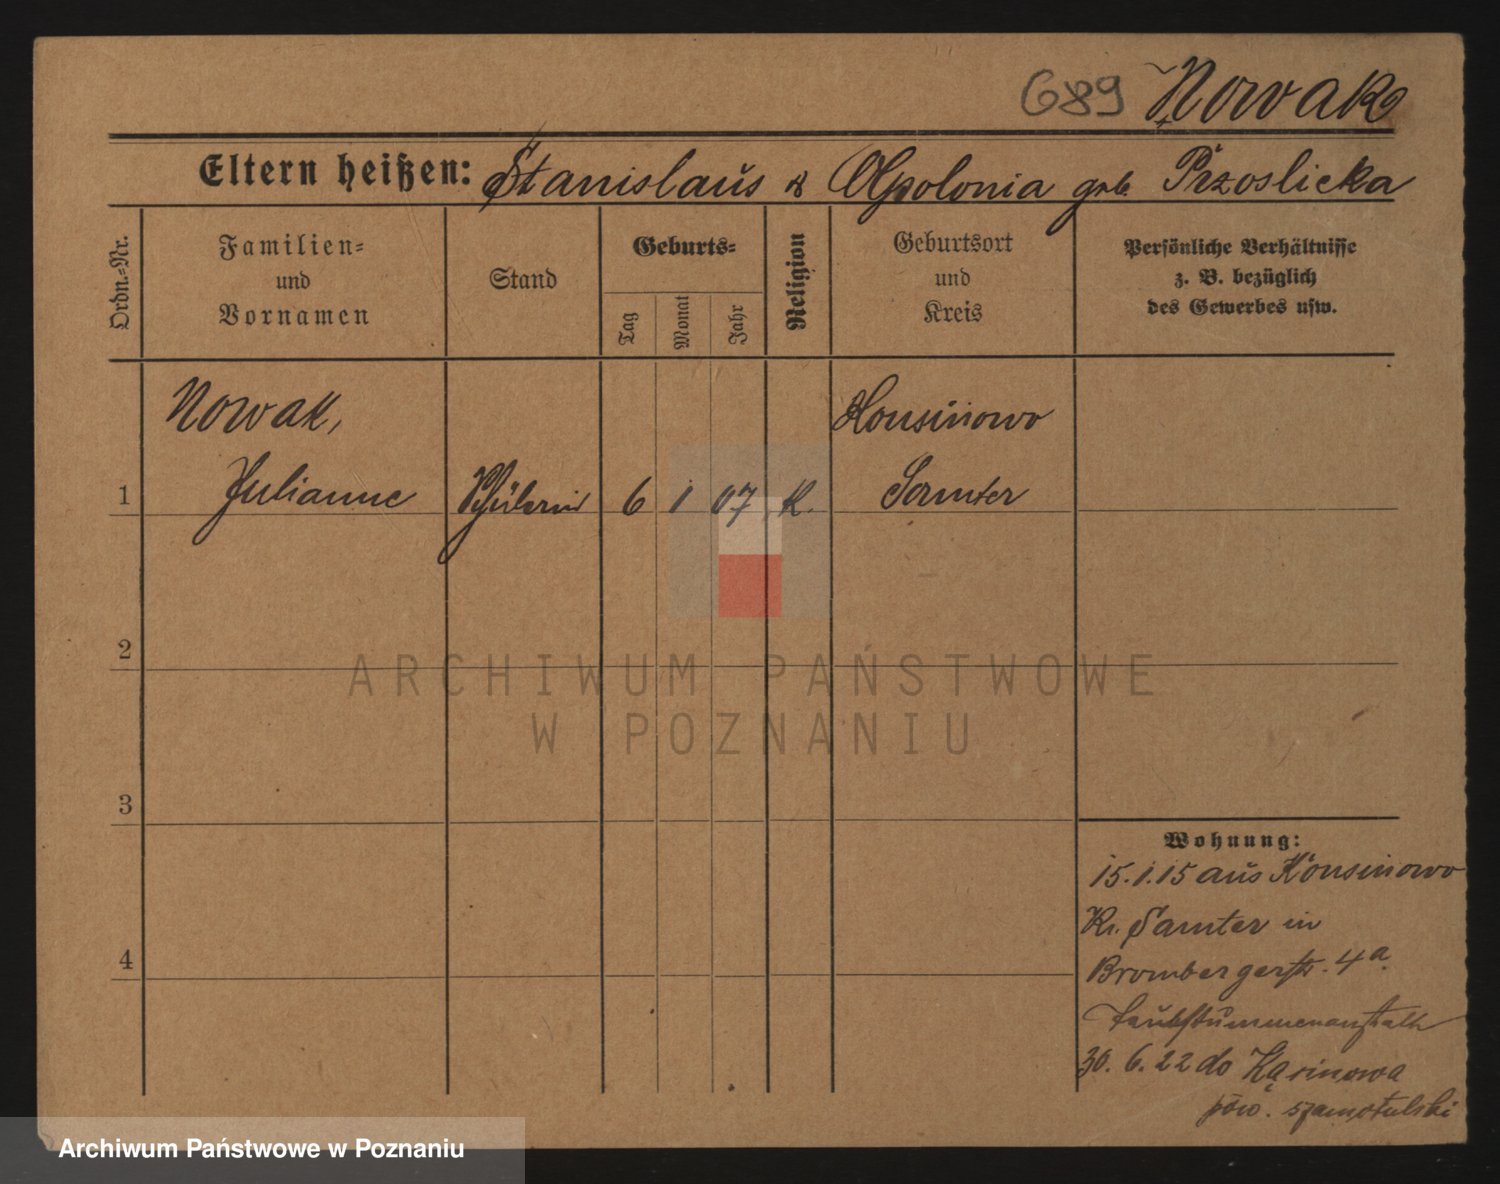 689 Nowak
Eltern heißen: Stanislaus & Apolonia geb. Przoslicka
Ordn.=Nr.
Familien=
und
Vornamen
Stand
Geburts=
Tag
Monat
Jahr
Religion
Geburtsort
und
Kreis
Persönliche Verhältnisse
z. B. bezüglich
des Gewerbes usw.
Nowak, Konsinowo
1 Julianne Schülerin 6 1 07 K. Samter
2
3
4
Wohnung:
15.1.15 aus Konsinowo
Kr. Samter in
Brombergerstr. 4a
Taubstummenanstalt
30. 6. 22 do Kąsinowa
pow. szamotulski
ARCHIWUM PAŃSTWOWE
W POZNANIU
Archiwum Państwowe w Poznaniu